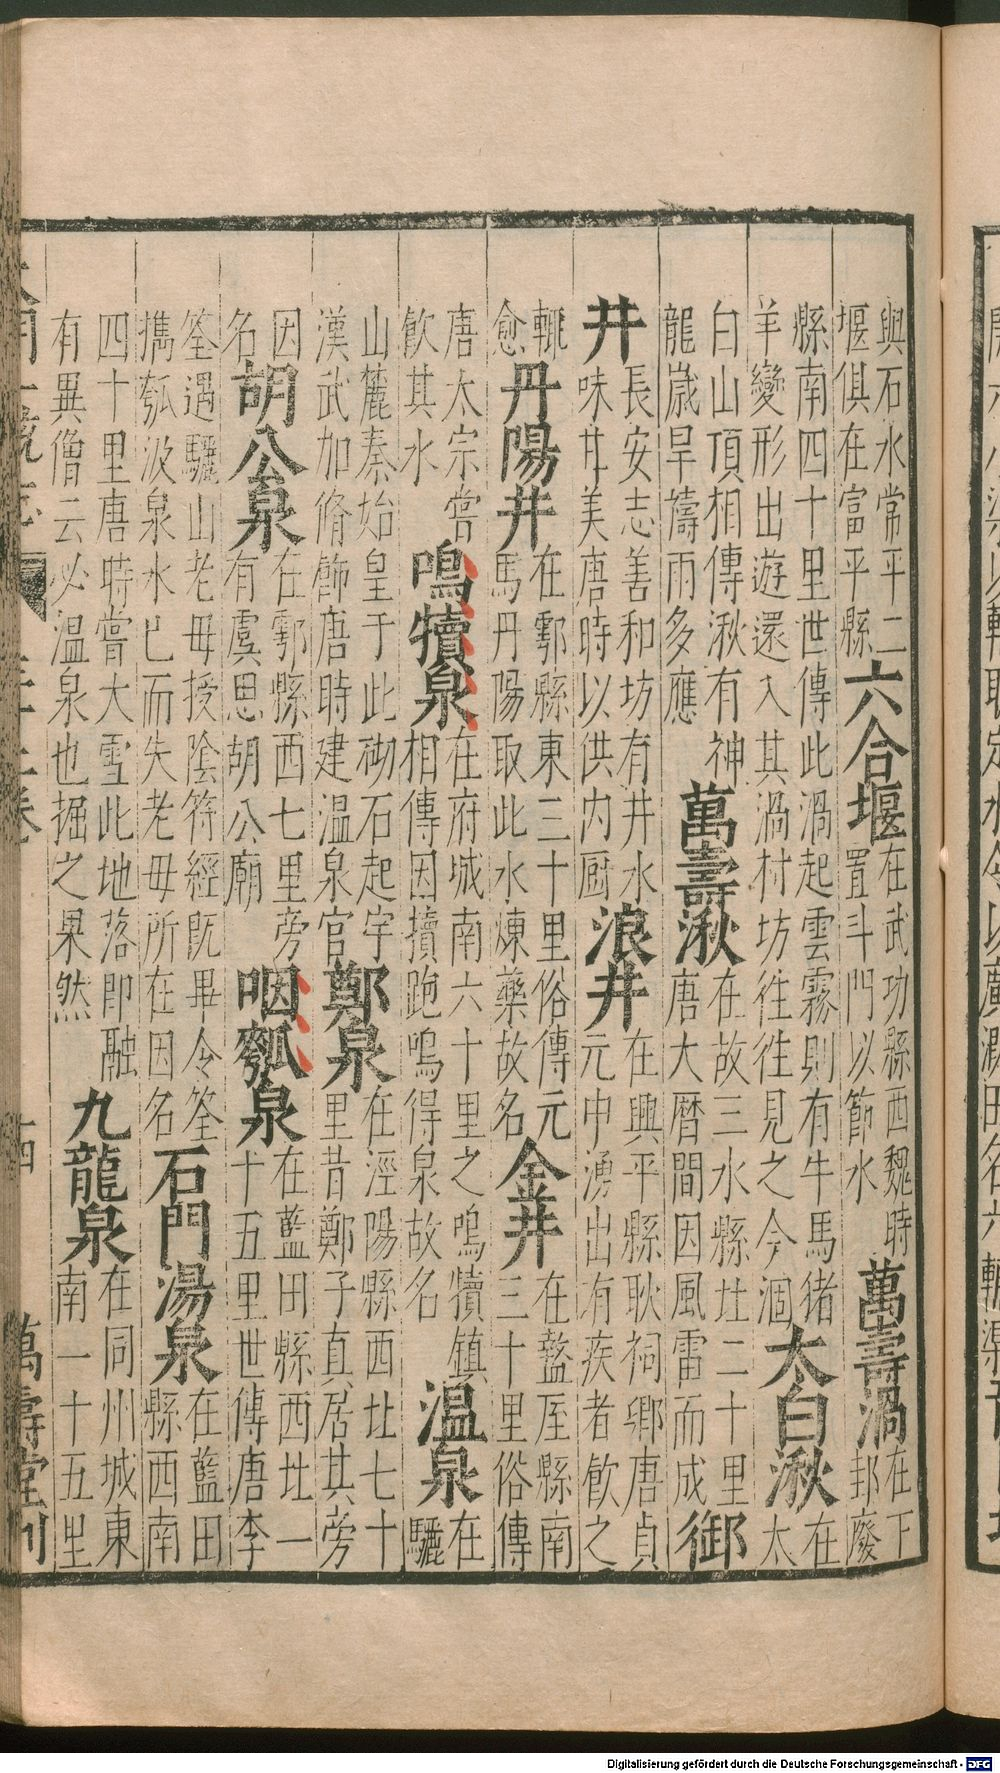 與石水常平二堰俱在富平縣六合堰在武功縣西魏時置斗門以節水萬壽渦在下邽廢
縣南四十里世傳此渦起雲霧則有牛馬猪羊變形出遊還入其渦村坊徃徃見之今涸太白湫在太
白山頂相傳湫有神龍歳旱禱雨多應萬壽湫在故三水縣北二十里唐大曆間因風雷而成御
井長安志善和坊有井水味甘美唐時以供内厨浪井在興平縣耿祠鄉唐貞元中湧出有疾者飲之
輒愈丹陽井在鄠縣東三十里俗傳元馬丹陽取此水煉藥故名金井在盩厔縣南三十里俗傳
唐太宗嘗飲其水鳴犢泉在府城南六十里之鳴犢鎮相傳因犢跑鳴得泉故名温泉在驪
山麓秦始皇于此砌石起宇漢武加脩飾唐時建温泉官鄭泉在涇陽縣西北七十里昔鄭子真居其旁
因名胡公泉在鄠縣西七里旁有虞思胡公廟咽瓠泉在藍田縣西北一十五里世傳唐李
筌遇驪山老母授陰符經既畢令筌擕瓠汲泉水已而失老母所在因名石門湯泉在藍田縣西南
四十里唐時嘗大雪此地落即融有異僧云必温泉也掘之果然九龍泉在同州城東南一十五里
萬壽堂刊
Digitalisierung gefördert durch die Deutsche Forschungsgemeinschaft - DFG